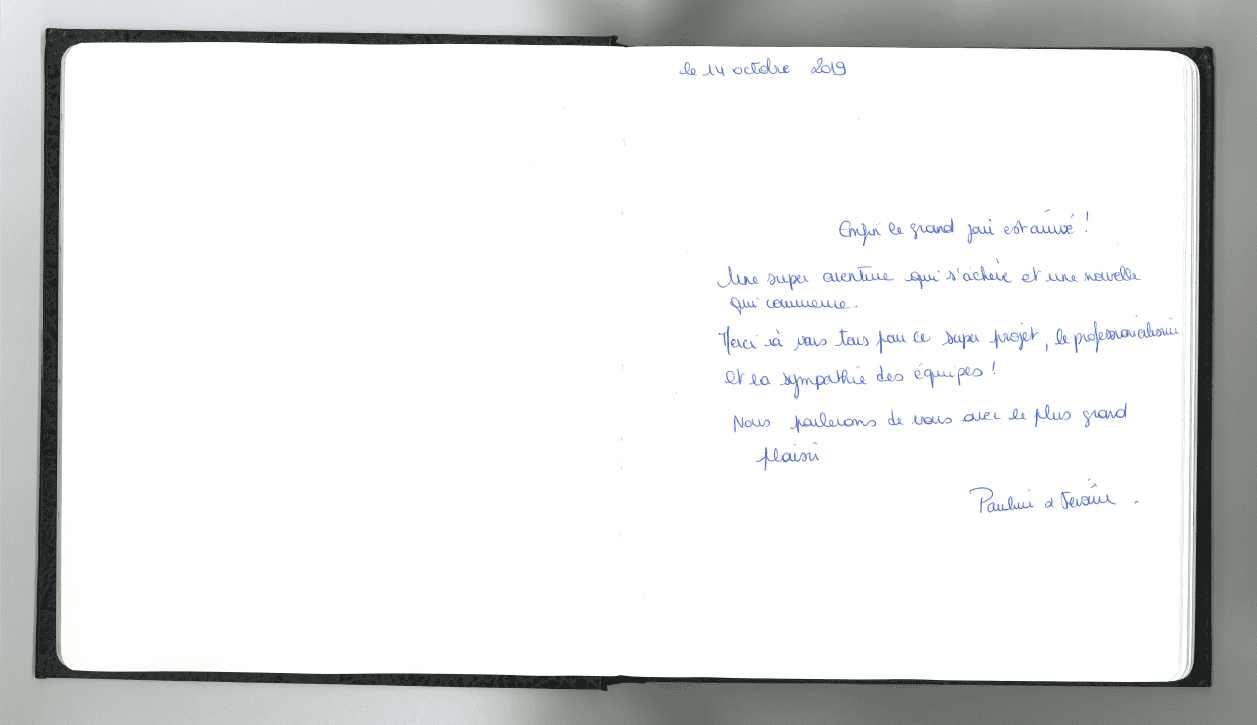 le 14 octobre 2019
Enfin le grand jour est arrivé !
Une super aventure qui s'achève et une nouvelle
qui commence.
Merci à vous tous pour ce super projet, le professionnalisme
et la sympathie des équipes !
Nous parlerons de vous avec le plus grand
plaisir
Pauline &